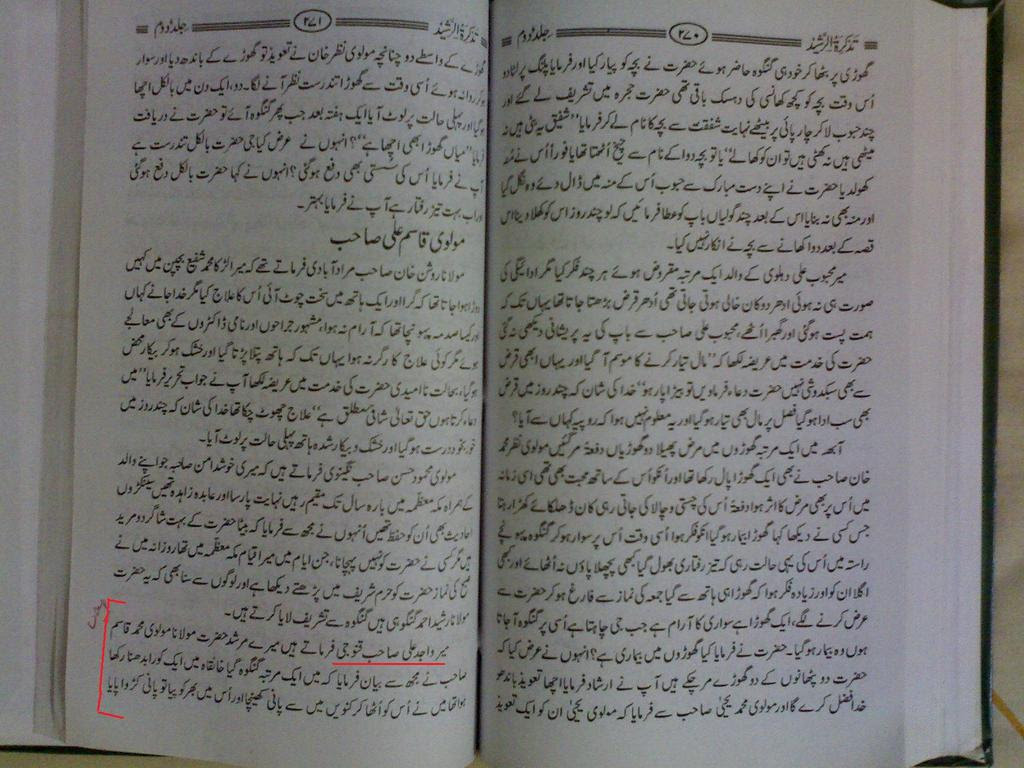 تذکرۃ الرشید ۲۷۰ جلد دوم
گھوڑی پر بٹھا کر خود ہی گنگوہ حاضر ہوئے حضرت نے بچہ کو پیار کیا اور فرمایا پلنگ پر لٹا دو
اُس وقت بچہ کو کچھ کھانسی کی دہسک باقی تھی حضرت حجرہ میں تشریف لے گئے اور
چند حبوب لا کر چارپائی پر بیٹھے نہایت شفقت سے بچہ کا نام لے کر فرمایا ”شفیق یہ بٹی ہیں نہ
میٹھی ہیں نہ کھٹی ہیں تو ان کو کھالے“ یا تو بچہ دوا کے نام سے چیخ اُٹھتا تھا یا فوراً اُس نے منہ
کھول دیا حضرت نے اپنے دست مبارک سے حبوب اُس کے منہ میں ڈال دے وہ نگل گیا
اور منہ بھی نہ بنایا اس کے بعد چند گولیاں باپ کو عطا فرمائیں کہ لو چند روز اس کو کھلا دینا اس
قصہ کے بعد دوا کھانے سے بچہ نے انکار نہیں کیا۔
میر محبوب علی دہلوی کے والد ایک مرتبہ مقروض ہوئے ہر چند فکر کیا مگر ادائیگی کی
صورت ہی نہ ہوئی ادھر دوکان خالی ہوئی جاتی تھی اُدھر قرض بڑھتا جاتا تھا یہاں تک کہ
ہمت پست ہوگئی اور گھبرا اُٹھے، محبوب علی صاحب سے باپ کی یہ پریشانی دیکھی نہ گئی
حضرت کی خدمت میں عریضہ لکھا کہ ”مال تیار کرنے کا موسم آ گیا اور یہاں ابھی قرض
سے بھی سبکدوشی نہیں حضرت دعاء فرماویں تو بیڑا پار ہو“ خدا کی شان کہ چند روز میں قرض
بھی سب ادا ہو گیا فصل پر مال بھی تیار ہو گیا اور یہ معلوم نہیں ہوا کہ روپیہ کہاں سے آیا؟
آبھہ میں ایک مرتبہ گھوڑوں میں مرض پھیلا دو گھوڑیاں دفعۃً مر گئیں مولوی نظر محمد
خان صاحب نے بھی ایک گھوڑا پال رکھا تھا اور انکو اُس کے ساتھ محبت بھی تھی اسی زمانہ
میں اُس پر بھی مرض کا اثر ہوا دفعۃً اُس کی چستی و چالا کی جاتی رہی کان ڈھلکائے کھڑا رہتا
جس کسی نے دیکھا کہا گھوڑا بیمار ہو گیا انکو فکر ہوا اُسی وقت اُس پر سوار ہو کر گنگوہ پہونچے
راستہ میں اُس کی یہی حالت رہی کہ تیز رفتاری بھول گیا کبھی پچھلا پاؤں نہ اُٹھائے اور کبھی
اگلا ان کو اور زیادہ فکر ہوا کہ گھوڑا ہی ہاتھ سے گیا جمعہ کی نماز سے فارغ ہو کر حضرت سے
عرض کرنے لگے، ایک گھوڑا ہے سواری کا آرام ہے جب جی چاہتا ہے اُسی پر گنگوہ آ جاتا
ہوں وہ بیمار ہو گیا۔ حضرت نے فرمایا کیا گھوڑوں میں بیماری ہے؟ انہوں نے عرض کیا کہ
حضرت دو پٹھانوں کے دو گھوڑے مر چکے ہیں آپ نے ارشاد فرمایا اچھا تعویذ باندھو
خدا فضل کرے گا اور مولوی محمد یحییٰ صاحب سے فرمایا کہ مولوی یحییٰ ان کو ایک تعویذ
تذکرۃ الرشید ۲۷۱ جلد دوم
گھوڑے کے واسطے دو چنانچہ مولوی نظر خان نے تعویذ تو گھوڑے کے باندھ دیا اور سوار
ہو کر روانہ ہوئے اُسی وقت سے گھوڑا تندرست نظر آنے لگا۔ دو، ایک دن میں بالکل اچھا
ہو گیا اور پہلی حالت پر لوٹ آیا ایک ہفتہ بعد جب پھر گنگوہ آئے تو حضرت نے دریافت
فرمایا ”میاں گھوڑا بھی اچھا ہے“؟ انہوں نے عرض کیا جی حضرت بالکل تندرست ہے
آپ نے فرمایا اُس کی سستی بھی دفع ہو گئی؟ انہوں نے کہا حضرت بالکل دفع ہوگئی
اور اب بہت تیز رفتار ہے آپ نے فرمایا بہتر۔
مولوی قاسم علی صاحب
مولانا روشن خان صاحب مراد آبادی فرماتے تھے کہ میرا لڑکا محمد شفیع بچپن میں کہیں
دوڑا ہوا جاتا تھا کہ گرا اور ایک ہاتھ میں سخت چوٹ آئی اُس کا علاج کیا مگر خدا جانے کہاں
اور کیسا صدمہ پہونچا تھا کہ آرام نہ ہوا، مشہور جراحوں اور نامی ڈاکٹروں کے بھی معالجے
ہوئے مگر کوئی علاج کارگر نہ ہوا یہاں تک کہ ہاتھ پتلا پڑتا گیا اور خشک ہو کر بیکار محض
ہو گیا، بحالت نا امیدی حضرت کی خدمت میں عریضہ لکھا آپ نے جواب تحریر فرمایا ”میں
دعاء کرتا ہوں حق تعالیٰ شافی مطلق ہے“ علاج چھوٹ چکا تھا خدا کی شان کہ چند روز میں
خود بخود درست ہو گیا اور خشک و بیکار شدہ ہاتھ پہلی حالت پر لوٹ آیا۔
مولوی محمود حسن صاحب نگینوی فرماتے ہیں کہ میری خوشدامن صاحبہ جو اپنے والد
کے ہمراہ مکہ معظمہ میں بارہ سال تک مقیم رہیں نہایت پارسا اور عابدہ زاہدہ تھیں سینکڑوں
احادیث بھی اُن کو حفظ تھیں انہوں نے مجھ سے فرمایا کہ بیٹا حضرت کے بہت شاگرد و مرید
ہیں مگر کسی نے حضرت کو نہیں پہچانا، جن ایام میں میرا قیام مکہ معظمہ میں تھا روزانہ میں نے
صبح کی نماز حضرت کو حرم شریف میں پڑھتے دیکھا ہے اور لوگوں سے سنا بھی کہ یہ حضرت
مولانا رشید احمد گنگوہی ہیں گنگوہ سے تشریف لایا کرتے ہیں۔
میر واجد علی صاحب قنوجی فرماتے ہیں میرے مرشد حضرت مولانا مولوی محمد قاسم
صاحب نے مجھ سے بیان فرمایا کہ میں ایک مرتبہ گنگوہ گیا خانقاہ میں ایک کورا بدھنا رکھا
ہوا تھا میں نے اُس کو اُٹھا کر کنویں میں سے پانی کھینچا اور اُس میں بھر کو پیا تو پانی کڑوا پایا